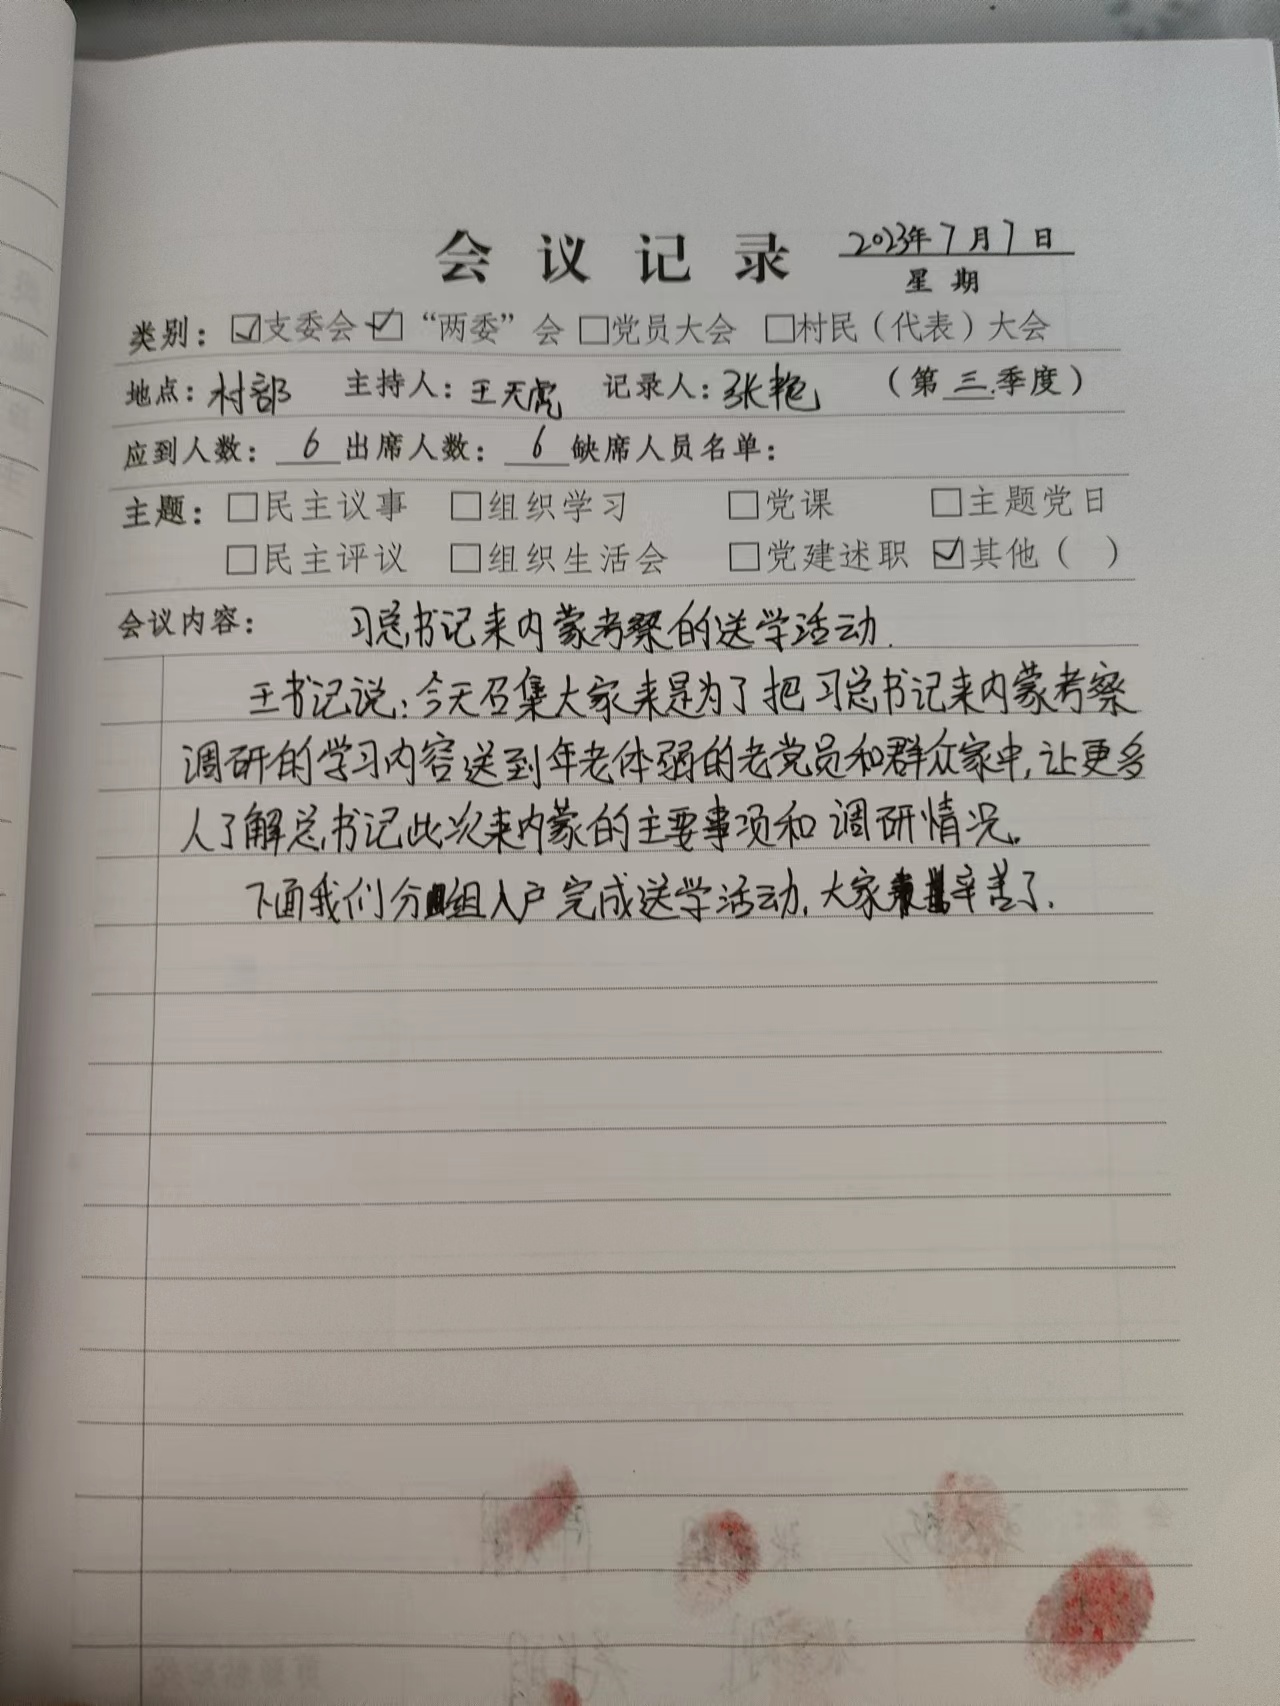 会议记录 2023年7月7日
星期
类别：☑支委会 ☑“两委”会 □党员大会 □村民（代表）大会
地点：村部 主持人：王天虎 记录人：张艳 （第三季度）
应到人数：6 出席人数：6 缺席人员名单：
主题：□民主议事 □组织学习 □党课 □主题党日
□民主评议 □组织生活会 □党建述职 ☑其他（ ）
会议内容： 习总书记来内蒙考察的送学活动.
王书记说：今天召集大家来是为了把习总书记来内蒙考察
调研的学习内容送到年老体弱的老党员和群众家中,让更多
人了解总书记此次来内蒙的主要事项和调研情况。
下面我们分组入户完成送学活动,大家辛苦了.